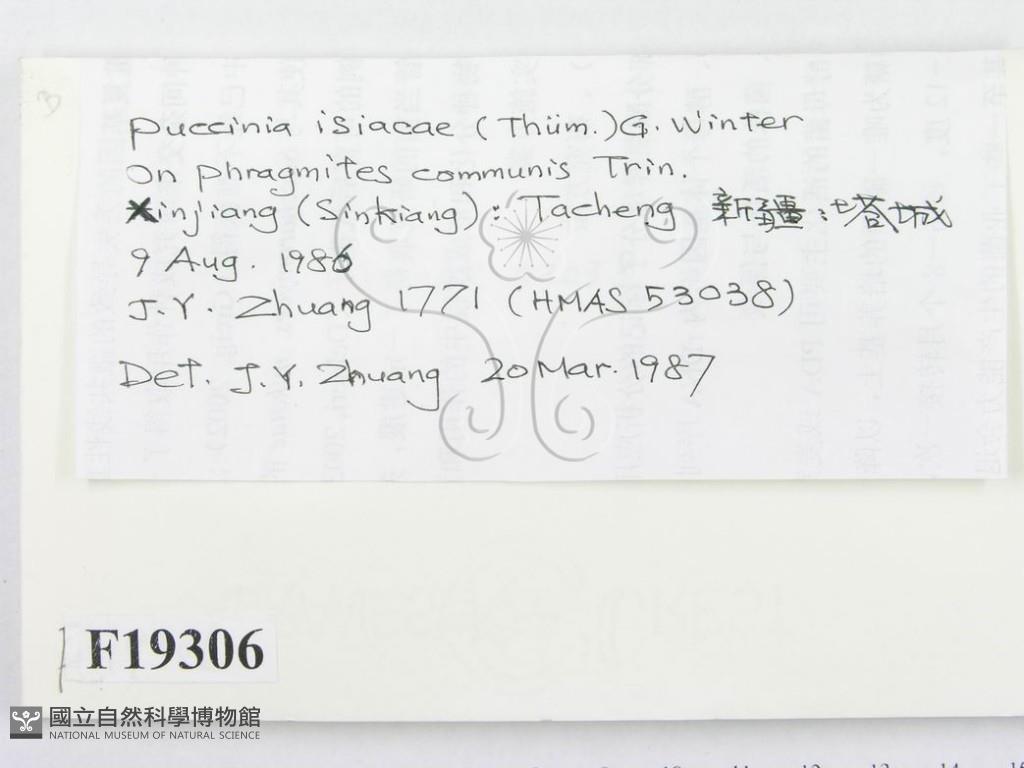 Puccinia isiacae (Thüm.) G. Winter
On Phragmites communis Trin.
Xinjiang (Sinkiang): Tacheng 新疆:塔城
9 Aug. 1986
J.Y. Zhuang 1771 (HMAS 53038)
Det. J.Y. Zhuang 20 Mar. 1987
F19306
國立自然科學博物館
NATIONAL MUSEUM OF NATURAL SCIENCE